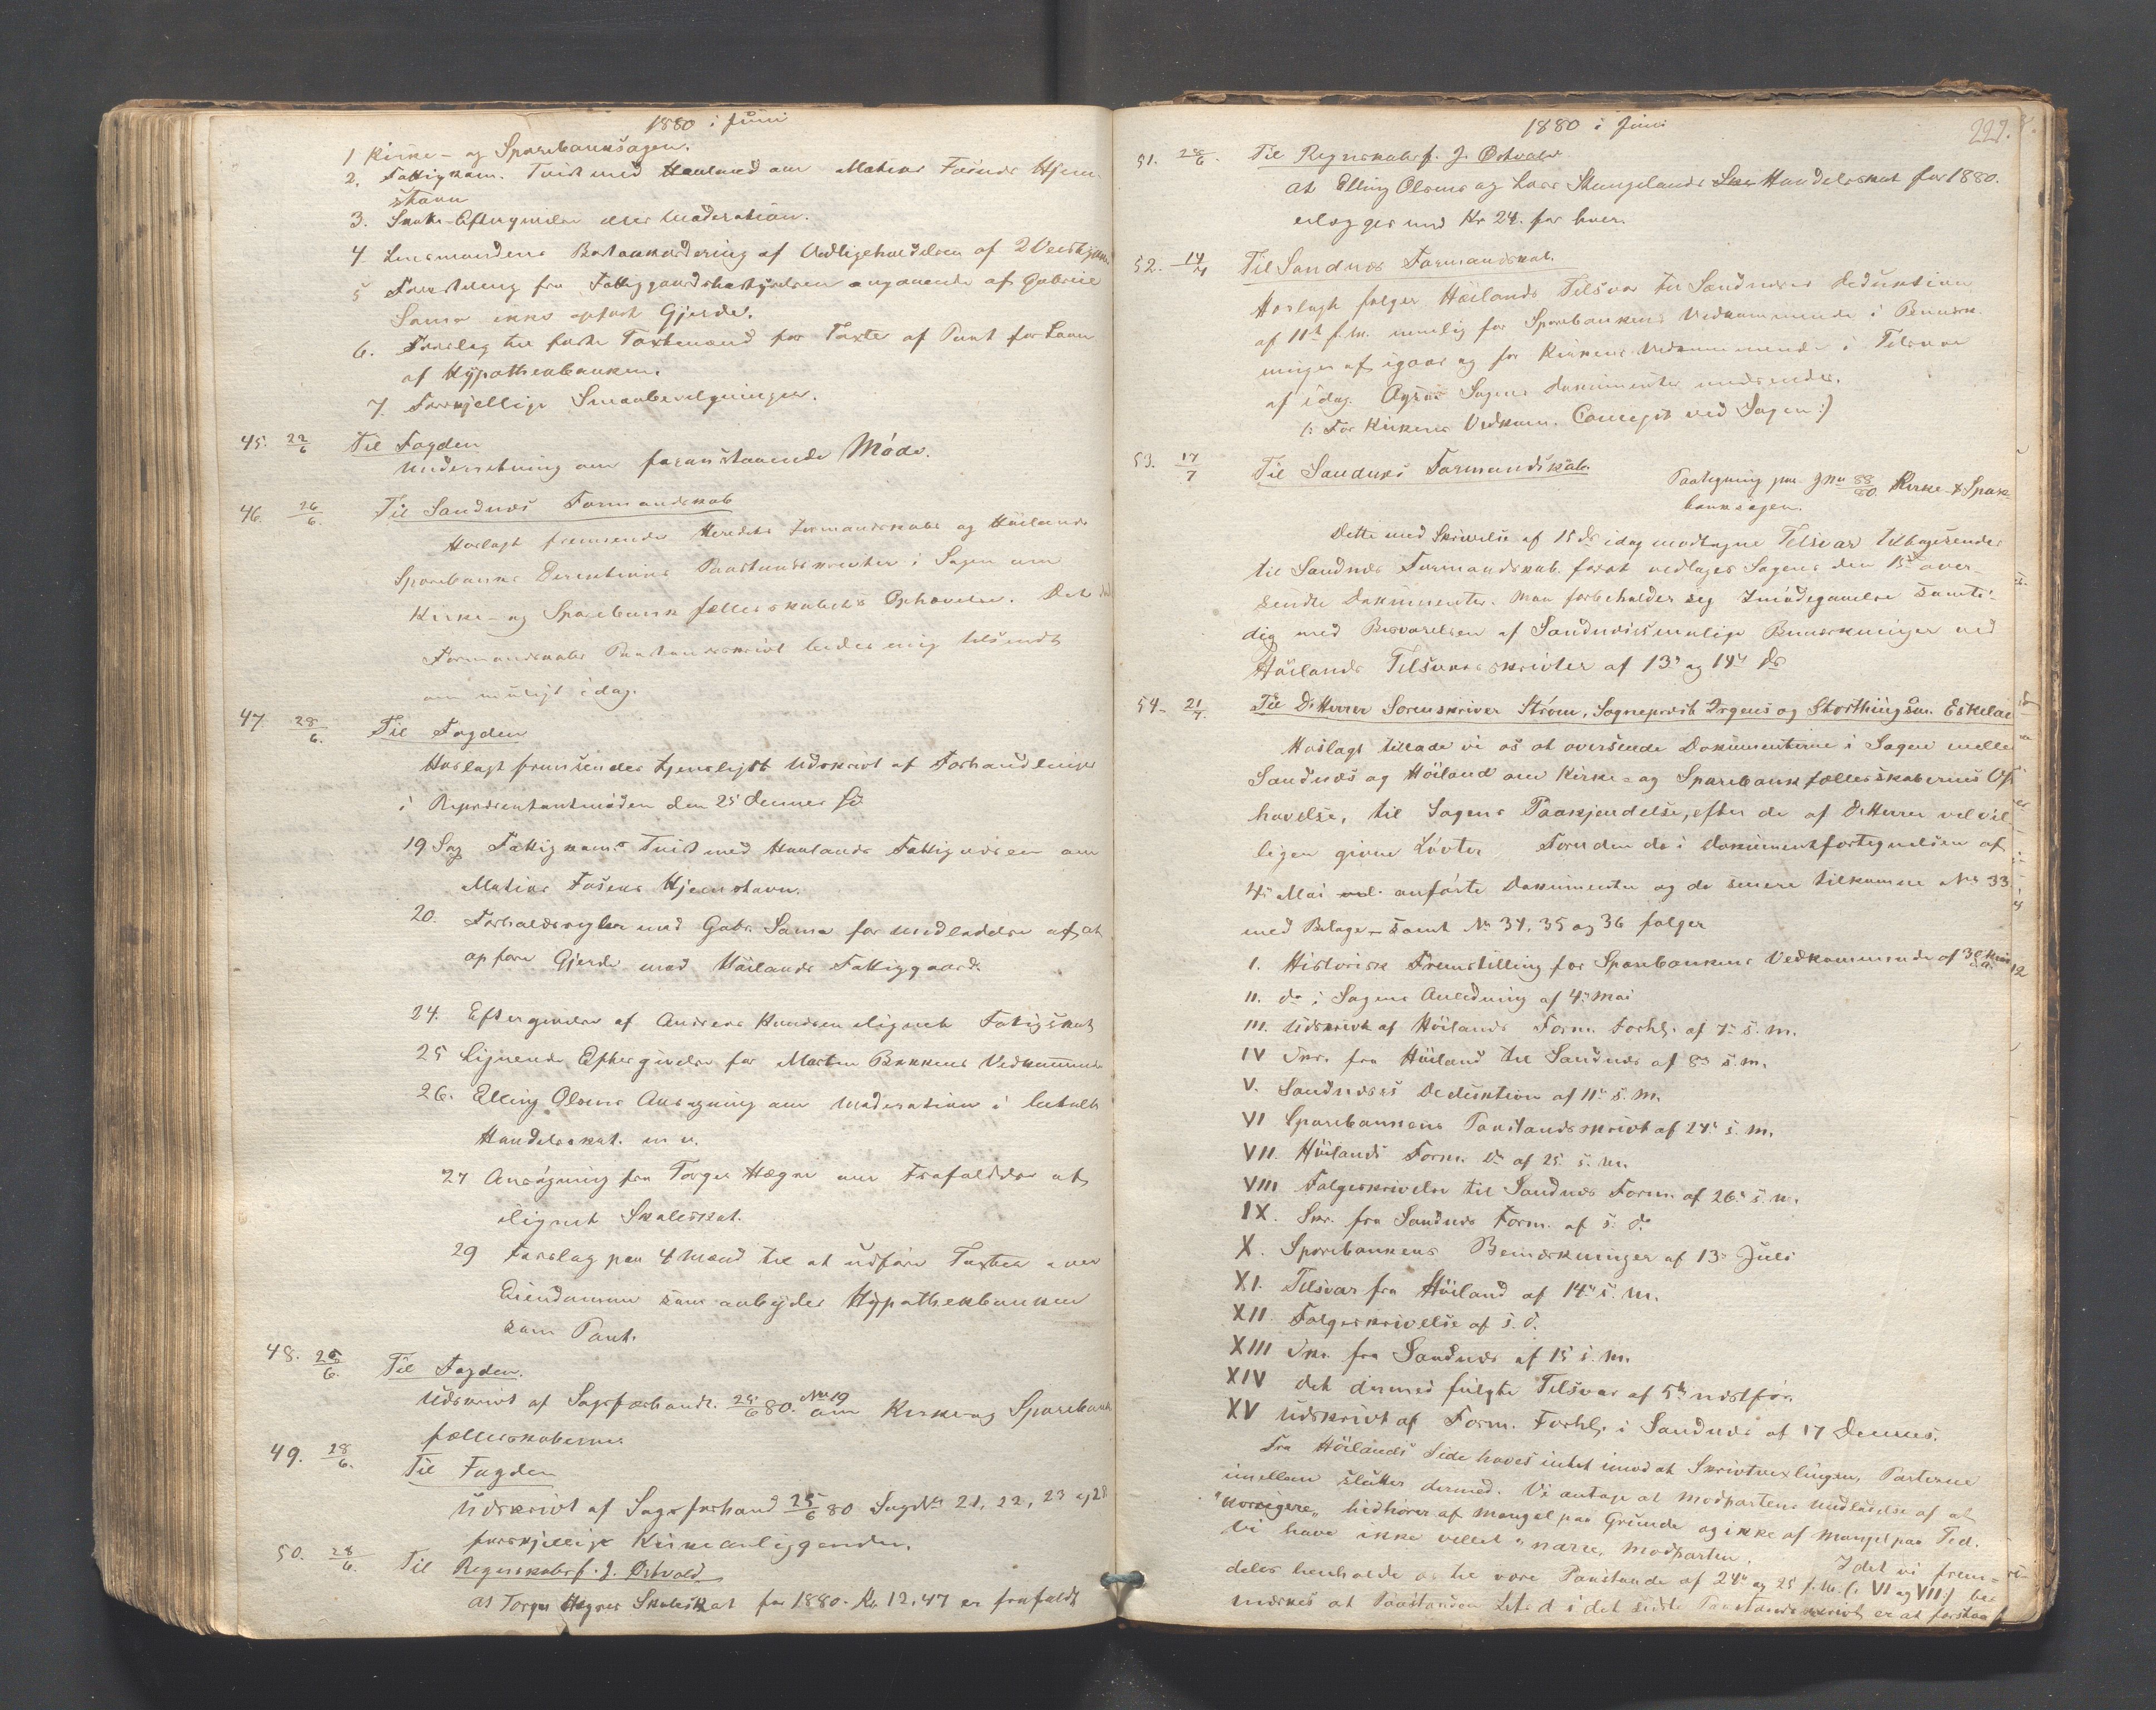 1880 i Juni
1 Kirke- og Sparebanksagen.
2. Fattigkom. Tvist med Haaland om Mathias Fosens Hjem-
stavn
3. Skatte-Eftergivelse eller Moderation.
4 Lensmandens Bortakkordering af Vedligeholdelsen af 2 Veistykker
5 Forestilling fra Fattiggaardsbestyrelsen angaaende af Gabriel
Soma ikke opført Gjerde.
6. Forslag til faste Taxtmænd for Taxter af Pant for Laan
af Hypothekbanken.
7. Forskjellige Smaabevilgninger.
45. 22/6 Til Fogden
Underretning om foranstaaende Møde.
46. 26/6. Til Sandnæs Formandskab
Hoslagt fremsendes Heredets Formandskabs og Høilands
Sparebanks Direktions Paastandsskrivter i Sagen om
Kirke- og Sparebankfællesskabets Ophævelse. Det
Formandskabs Paastandsskrivt bedes mig tilsendt
om muligt idag.
47. 28/6. Til Fogden
Hoslagt fremsendes tjenstligst Udskrivt af Forhandlinger
i Repræsentantmøden den 25 dennes
19 Sag Fattigkoms Tvist med Haalands Fattigvæsen om
Mathias Fosens Hjemstavn.
20. Forholdsregler mod Gabr. Soma for Undladelse af at
opføre Gjerde mod Høilands Fattiggaard.
24. Eftergivelse af Andreas Knudsen ilignet Fatigskat
25 Lignende Eftergivelse for Morten Bakkens Vedkommende
26. Elling Olsens Ansøgning om Moderation i betalt
Handelsskat. m v.
27 Ansøgning fra Torger Hogne om Frafaldelse af
ilignet Skoleskat.
29 Forslag paa 4 Mænd til at udføre Taxter over
Eiendomme som anbydes Hypothekbanken
som Pant.
48. 28/6. Til Fogden.
Udskrivt af Sagsforhandl. 25/6 80. No 19 om Kirke og Sparebank
fællesskaberne.
49. 28/6. Til Fogden
Udskrivt af Sagsforhand 25/6 80 Sag No 21, 22, 23 og 28
forskjellige Kirkeanliggender.
50. 28/6. Til Regnskabsf. J. Østvold
at Torger Hognes Skoleskat for 1880. Kr. 12,47 er frafaldt
1880 i Juni
51. 28/6. Til Regnskabsf. J. Østvold
at Elling Olsens og Lars Stangelands Handelsskat for 1880.
erlægges med Kr 24. for hver.
52. 14/7 Til Sandnæs Formandskab.
Hoslagt følger Høilands Tilsvar til Sandnæses Deduktion
af 11te f. M. nemlig for Sparebankens Vedkommende i Bemærk-
ninger af igaar og for Kirkens Vedkommende i Tilsvar
af idag. Ogsaa Sagens Dokumenter medsendes.
/: For Kirkens Vedkom. Concept ved Sagen:/
53. 17/7 Til Sandnæs Formandskab.
Paategning paa Jno 88/80. Kirke & Spare
banksagen.
Dette med Skrivelse af 15 ds idag modtagne Tilsvar tilbagesendes
til Sandnæs Formandskab forat vedlægges Sagens den 15de over-
sendte Dokumenter. Man forbeholder sig Imødegaaelse samti-
dig med Besvarelsen af Sandnæs's mulige Bemærkninger ved
Høilands Tilsvarsskrivter af 13de og 14de ds
54. 21/7. Til D'Herrer Sorenskriver Strøm, Sogneprest Irgens og Storthingsm. Eskelan
Hoslagt tillade vi os at oversende Dokumenterne i Sagen melle
Sandnæs og Høiland om Kirke- og Sparebankfællesskabernes Op
hævelse, til Sagens Paakjendelse, efter de af D'Herrer velvil
ligen givne Løvter. Foruden de i Dokumentfortegnelsen af
4de Mai anførte Dokumenter og de senere tilkomne No 33
med Bilage - samt No 34, 35 og 36 følger
I. Historisk Fremstilling for Sparebankens Vedkommende af
II. do i Sagens Anledning af 4de Mai
III. Udskrivt af Høilands Form. Forhl. af 7de s. M.
IV Skr. fra Høiland til Sandnæs af 8de s. M.
V. Sandnæses Deduktion af 11te s. M.
VI Sparebankens Paastandsskrivt af 24de s. M.
VII. Høilands Form. do af 25. s. M.
VIII Følgeskrivelse til Sandnæs Form. af 26de s. M.
IX. Skr. fra Sandnæs Form. af s. d.
X. Sparebankens Bemærkninger af 13de Juli
XI. Tilsvar fra Høiland af 14de s. M.
XII. Følgeskrivelse af s. d.
XIII Skr. fra Sandnæs af 15 s. M.
XIV det dermed fulgte Tilsvar af 5te næstfør.
XV Udskrivt af Form. Forhl. i Sandnæs af 17 dennes.
Fra Høilands Side haves intet imod at Skrivtvexlingen Parterne
imellem slutter dermed. Vi antage at Modpartens Undladelse af at
"korrigere" hidhører af Mangel paa Grunde og ikke af Mangel paa Tid.
Vi have ikke villet "narre" Modparten. Idet vi frem-
deles henholde os til vore Paastande af 24de og 25 f. M. (: VI og VII:) be-
mærkes at Paastanden Lit. d i det sidste Paastandsskrivt er at forstaa